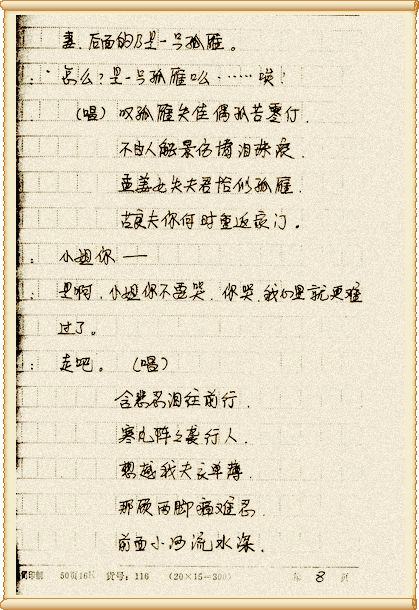 妻.后面的乃是一只孤雁。
：怎么？是一只孤雁么……唉！
（唱）叹孤雁失佳偶孤苦零仃.
不由人触景伤情泪珠滚.
孟姜女失夫君恰似孤雁.
古良夫你何时重返家门。
：小姐你——
：是啊,小姐你不要哭.你哭,我们是就更难
过了。
：走吧。（唱）
含悲忍泪往前行.
寒风阵之袭行人.
想起我夫衣单薄.
那顾两脚痛难忍.
前面小河流水深.
印制 50页16K 货号：116 （20×15=300） 第 8 页